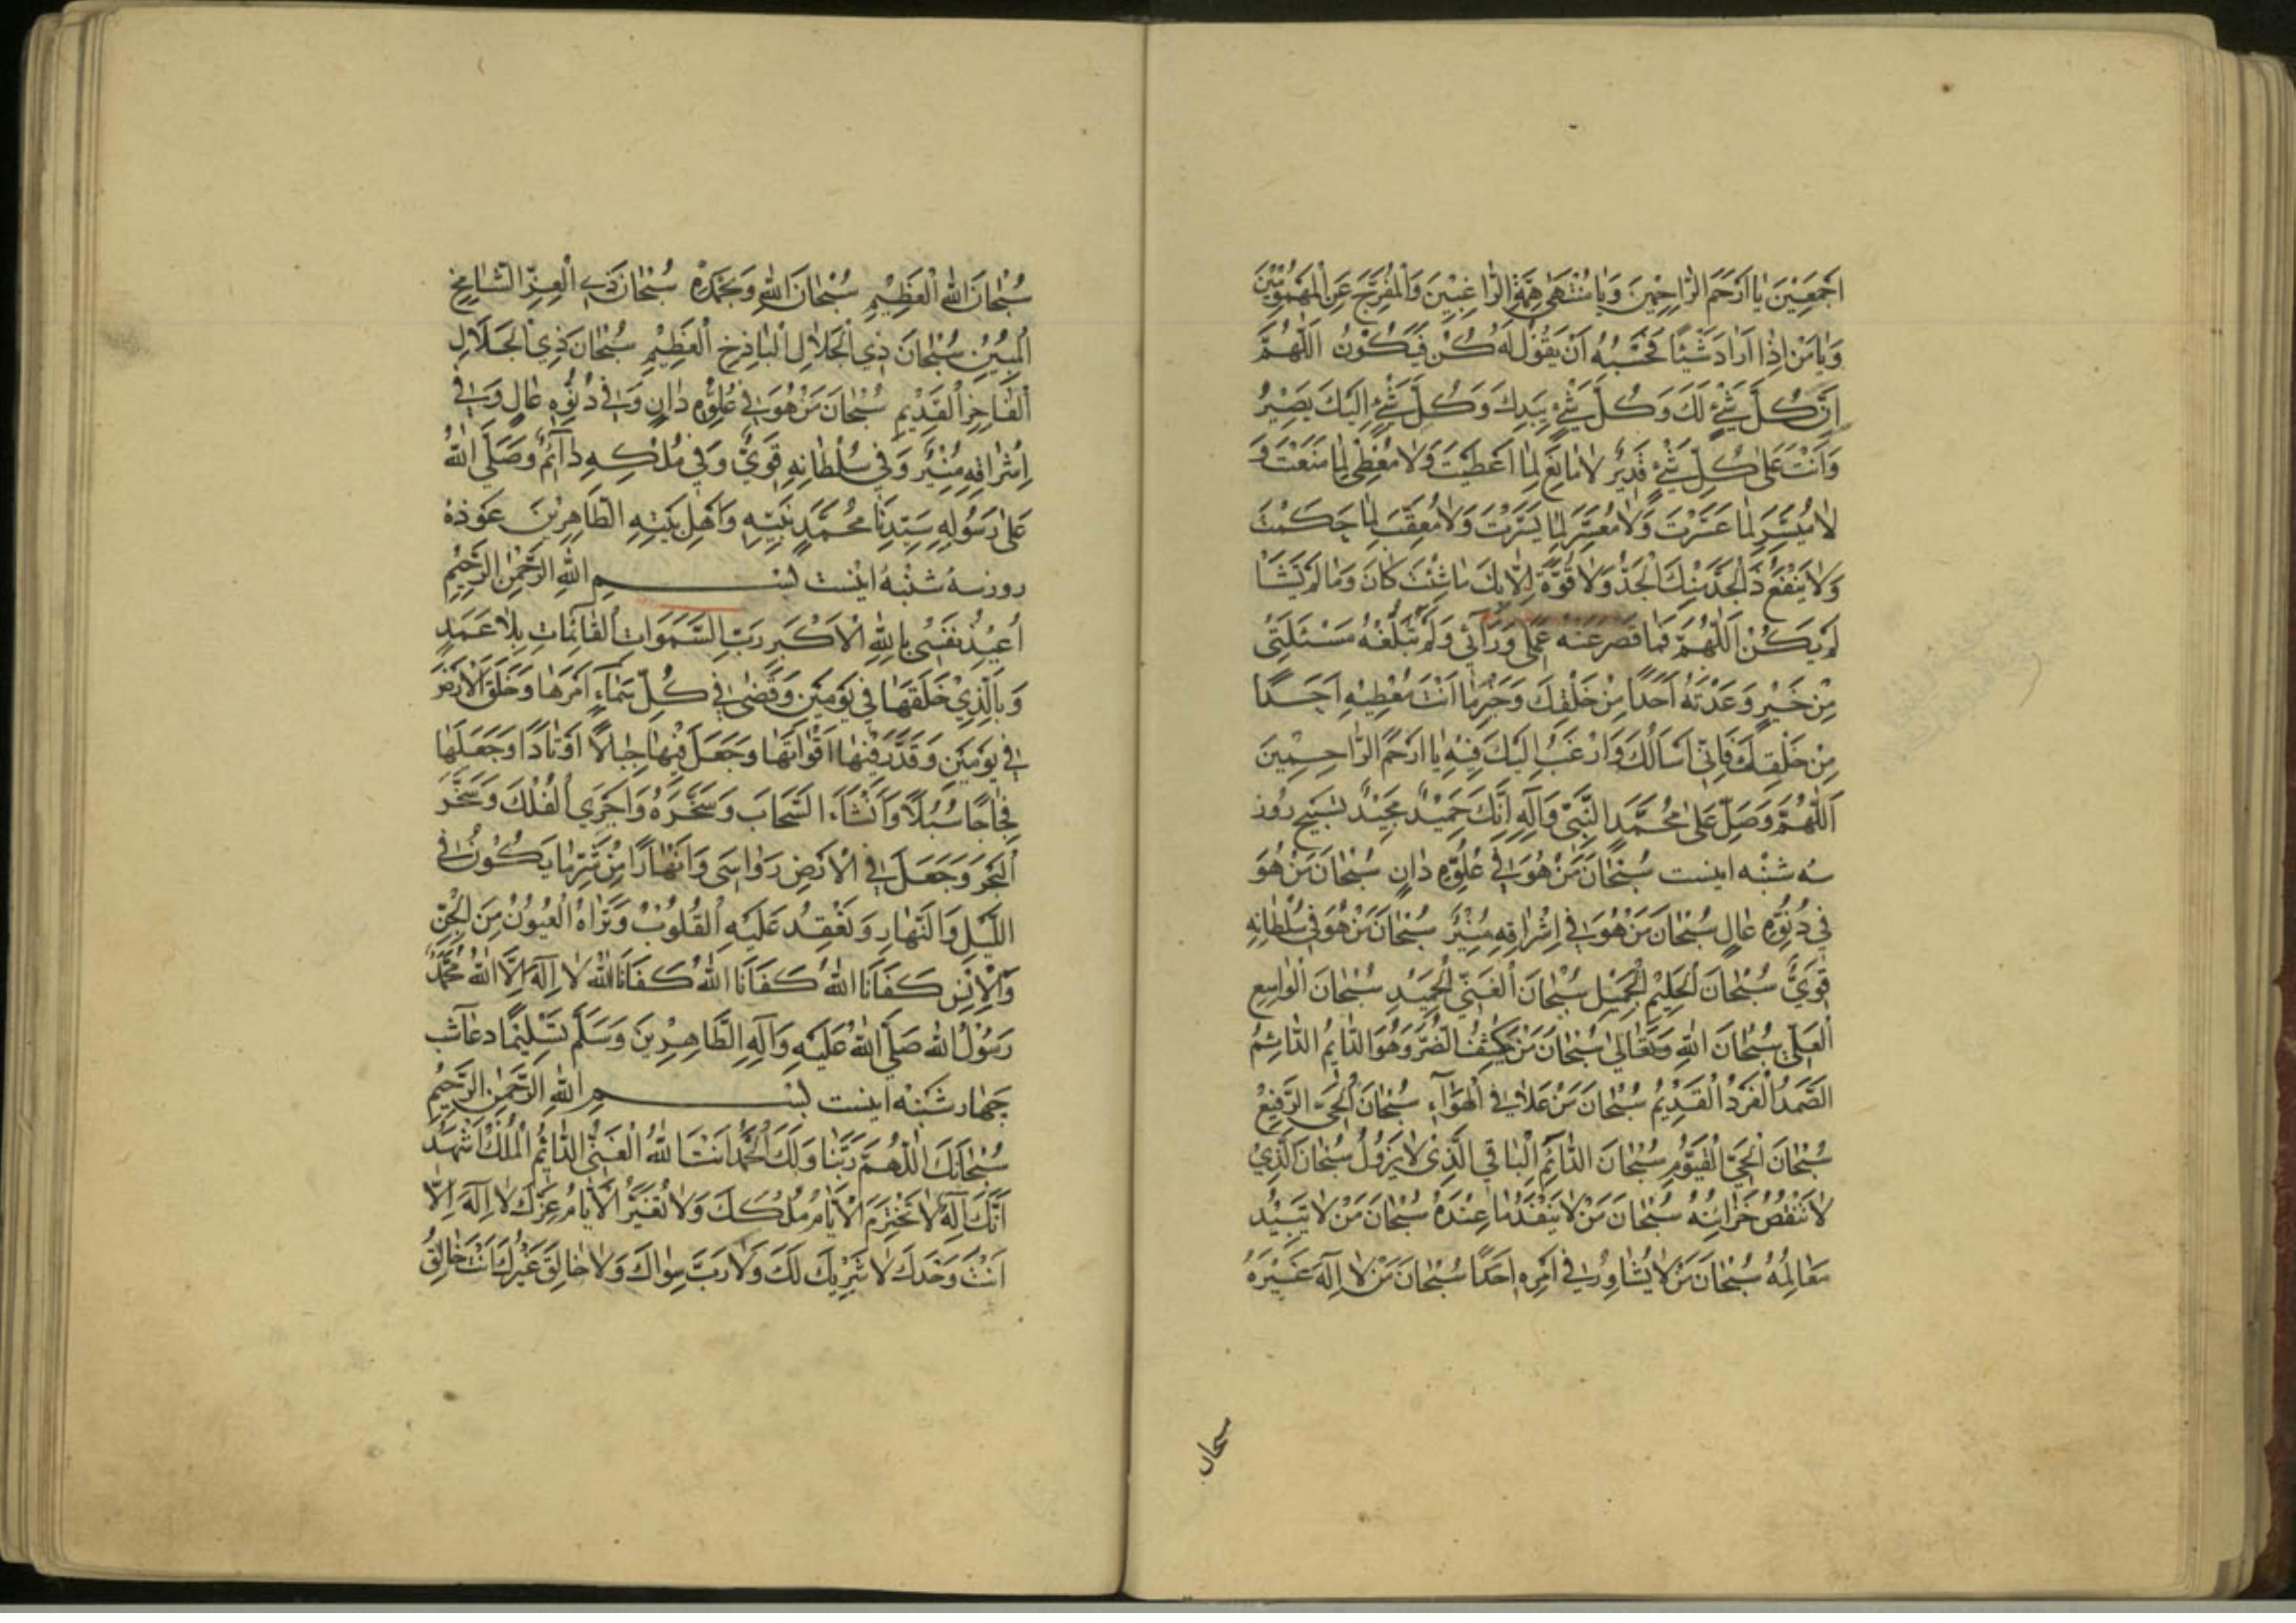 اَجْمَعِيْنَ يٰا اَرْحَمَ الرّٰاحِمْيِنَ وَيٰا مُنْتَهٰى هِمَّةِ الرّٰاغِبْيِنَ وَالْمُفَرِّجَ عَنِ الْمَهْمُوْمْيِنَ
وَيٰا مَنْ اِذٰا اَرٰادَ شَيْئًا فَحَسْبُهُ اَنْ يَقُوْلَ لَهُ كُنْ فَيَكُوْنُ اَللّٰهُمَّ
اِنَّ كُلَّ شَيْءٍ لَكَ وَكُلَّ شَيْءٍ بِيَدِكَ وَكُلَّ شَيْءٍ اِلَيْكَ يَصِيْرُ
وَاَنْتَ عَلٰى كُلِّ شَيْءٍ قَدِيْرٌ لٰا مٰانِعَ لِمٰا اَعْطَيْتَ وَلٰا مُعْطِيَ لِمٰا مَنَعْتَ وَ
لٰا مُيَسِّرَ لِمٰا عَسَّرْتَ وَلٰا مُعَسِّرَ لِمٰا يَسَّرْتَ وَلٰا مُعَقِّبَ لِمٰا حَكَمْتَ
وَلٰا يَنْفَعُ ذَا الْجَدِّ مِنْكَ الْجَدُّ وَلٰا قُوَّةَ اِلّٰا بِكَ مٰا شِئْتَ كٰانَ وَمٰا لَمْ تَشَأْ
لَمْ يَكُنْ اَللّٰهُمَّ فَمٰا قَصُرَ عَنْهُ عَمَلِي وَرَأْئِي وَلَمْ تَبْلُغْهُ مَسْئَلَتِي
مِنْ خَيْرٍ وَعَدْتَهُ اَحَدًا مِنْ خَلْقِكَ وَخَيْرٍ مٰا اَنْتَ مُعْطِيْهِ اَحَدًا
مِنْ خَلْقِكَ فَاِنِّي اَسْأَلُكَ وَاَرْغَبُ اِلَيْكَ فِيْهِ يٰا اَرْحَمَ الرّٰاحِمِيْنَ
اَللّٰهُمَّ وَصَلِّ عَلٰى مُحَمَّدٍ النَّبِيِّ وَآلِهِ اِنَّكَ حَمِيْدٌ مَجِيْدٌ تسبيح روز
سه شنبه اينست سُبْحٰانَ مَنْ هُوَ فِي عُلُوِّهِ دٰانٍ سُبْحٰانَ مَنْ هُوَ
فِي دُنُوِّهِ عٰالٍ سُبْحٰانَ مَنْ هُوَ فِي اِشْرٰاقِهِ مُنْيِرٌ سُبْحٰانَ مَنْ هُوَ فِي سُلْطٰانِهِ
قَوِيٌّ سُبْحٰانَ الْحَلِيْمِ الْجَمِيْلِ سُبْحٰانَ الْغَنِيِّ الْحَمِيْدِ سُبْحٰانَ الْوٰاسِعِ
الْعَلِيِّ سُبْحٰانَ اللّٰهِ وَتَعٰالٰى سُبْحٰانَ مَنْ يَكْشِفُ الضُّرَّ وَهُوَ الدّٰائِمُ الدّٰائِمُ
الصَّمَدُ الْفَرْدُ الْقَدِيْمُ سُبْحٰانَ مَنْ عَلٰا فِي الْهَوٰآءِ سُبْحٰانَ الْحَيِّ الرَّفِيْعِ
سُبْحٰانَ الْحَيِّ الْقَيُّوْمِ سُبْحٰانَ الدّٰائِمِ الْبٰاقِي الَّذِي لٰا يَزُوْلُ سُبْحٰانَ الَّذِي
لٰا تَنْقُصُ خَزٰائِنُهُ سُبْحٰانَ مَنْ لٰا يَنْفَدُ مٰا عِنْدَهُ سُبْحٰانَ مَنْ لٰا تَبِيْدُ
مَعٰالِمُهُ سُبْحٰانَ مَنْ لٰا يُشٰاوِرُ فِي اَمْرِهِ اَحَدًا سُبْحٰانَ مَنْ لٰا اِلٰهَ غَيْرُهُ
سبحان
سُبْحٰانَ اللّٰهِ الْعَظِيْمِ سُبْحٰانَ اللّٰهِ وَبِحَمْدِهِ سُبْحٰانَ ذِي الْعِزِّ الشّٰامِخِ
الْمُبِيْنِ سُبْحٰانَ ذِي الْجَلٰالِ الْبٰاذِخِ الْعَظِيْمِ سُبْحٰانَ ذِي الْجَلٰالِ
الْفٰاخِرِ الْقَدِيْمِ سُبْحٰانَ مَنْ هُوَ فِي عُلُوِّهِ دٰانٍ وَفِي دُنُوِّهِ عٰالٍ وَفِي
اِشْرٰاقِهِ مُنْيِرٌ وَفِي سُلْطٰانِهِ قَوِيٌّ وَفِي مُلْكِهِ دٰآئِمٌ وَصَلَّى اللّٰهُ
عَلٰى رَسُوْلِهِ سَيِّدِنٰا مُحَمَّدٍ نَبِيِّهِ وَاَهْلِ بَيْتِهِ الطّٰاهِرِيْنَ عوذهٔ
روز سه شنبه اينست بِسْمِ اللّٰهِ الرَّحْمٰنِ الرَّحِيْمِ
اُعِيْذُ نَفْسِي بِاللّٰهِ الْاَكْبَرِ رَبِّ السَّمَوٰاتِ الْقٰائِمٰاتِ بِلٰا عَمَدٍ
وَبِالَّذِيْ خَلَقَهٰا فِي يَوْمَيْنِ وَقَضٰى فِي كُلِّ سَمٰاءٍ اَمْرَهٰا وَخَلَقَ الْاَرْضَ
فِي يَوْمَيْنِ وَقَدَّرَ فِيْهٰا اَقْوٰاتَهٰا وَجَعَلَ فِيْهٰا جِبٰالًا اَوْتٰادًا وَجَعَلَهٰا
فِجٰاجًا سُبُلًا وَاَنْشَاَ السَّحٰابَ وَسَخَّرَهُ وَاَجْرَي الْفُلْكَ وَسَخَّرَ
الْبَحْرَ وَجَعَلَ فِي الْاَرْضِ رَوٰاسِيَ وَاَنْهٰارًا مِنْ شَرِّ مٰا يَكُوْنُ فِي
اللَّيْلِ وَالنَّهٰارِ وَتَعْقِدُ عَلَيْهِ الْقُلُوْبُ وَتَرٰاهُ الْعُيُوْنُ مِنَ الْجِنِّ
وَالْاِنْسِ كَفٰانَا اللّٰهُ كَفٰانَا اللّٰهُ كَفٰانَا اللّٰهُ لٰا اِلٰهَ اِلَّا اللّٰهُ مُحَمَّدٌ
رَسُوْلُ اللّٰهِ صَلَّى اللّٰهُ عَلَيْهِ وَآلِهِ الطّٰاهِرِيْنَ وَسَلَّمَ تَسْلِيْمًا دعآ شب
چهار شنبه اينست بِسْمِ اللّٰهِ الرَّحْمٰنِ الرَّحِيْمِ
سُبْحٰانَكَ اللّٰهُمَّ رَبَّنٰا وَلَكَ الْحَمْدُ اَنْتَ اللّٰهُ الْغَنِيُّ الدّٰائِمُ الْمَلِكُ اَشْهَدُ
اَنَّكَ اِلٰهٌ لٰا تَخْتَرِمُ الْاَيّٰامُ مُلْكَكَ وَلٰا تُغَيِّرُ الْاَيّٰامُ عِزَّكَ لٰا اِلٰهَ اِلّٰا
اَنْتَ وَحْدَكَ لٰا شَرِيْكَ لَكَ وَلٰا رَبَّ سِوٰاكَ وَلٰا خٰالِقَ غَيْرُكَ اَنْتَ خٰالِقُ